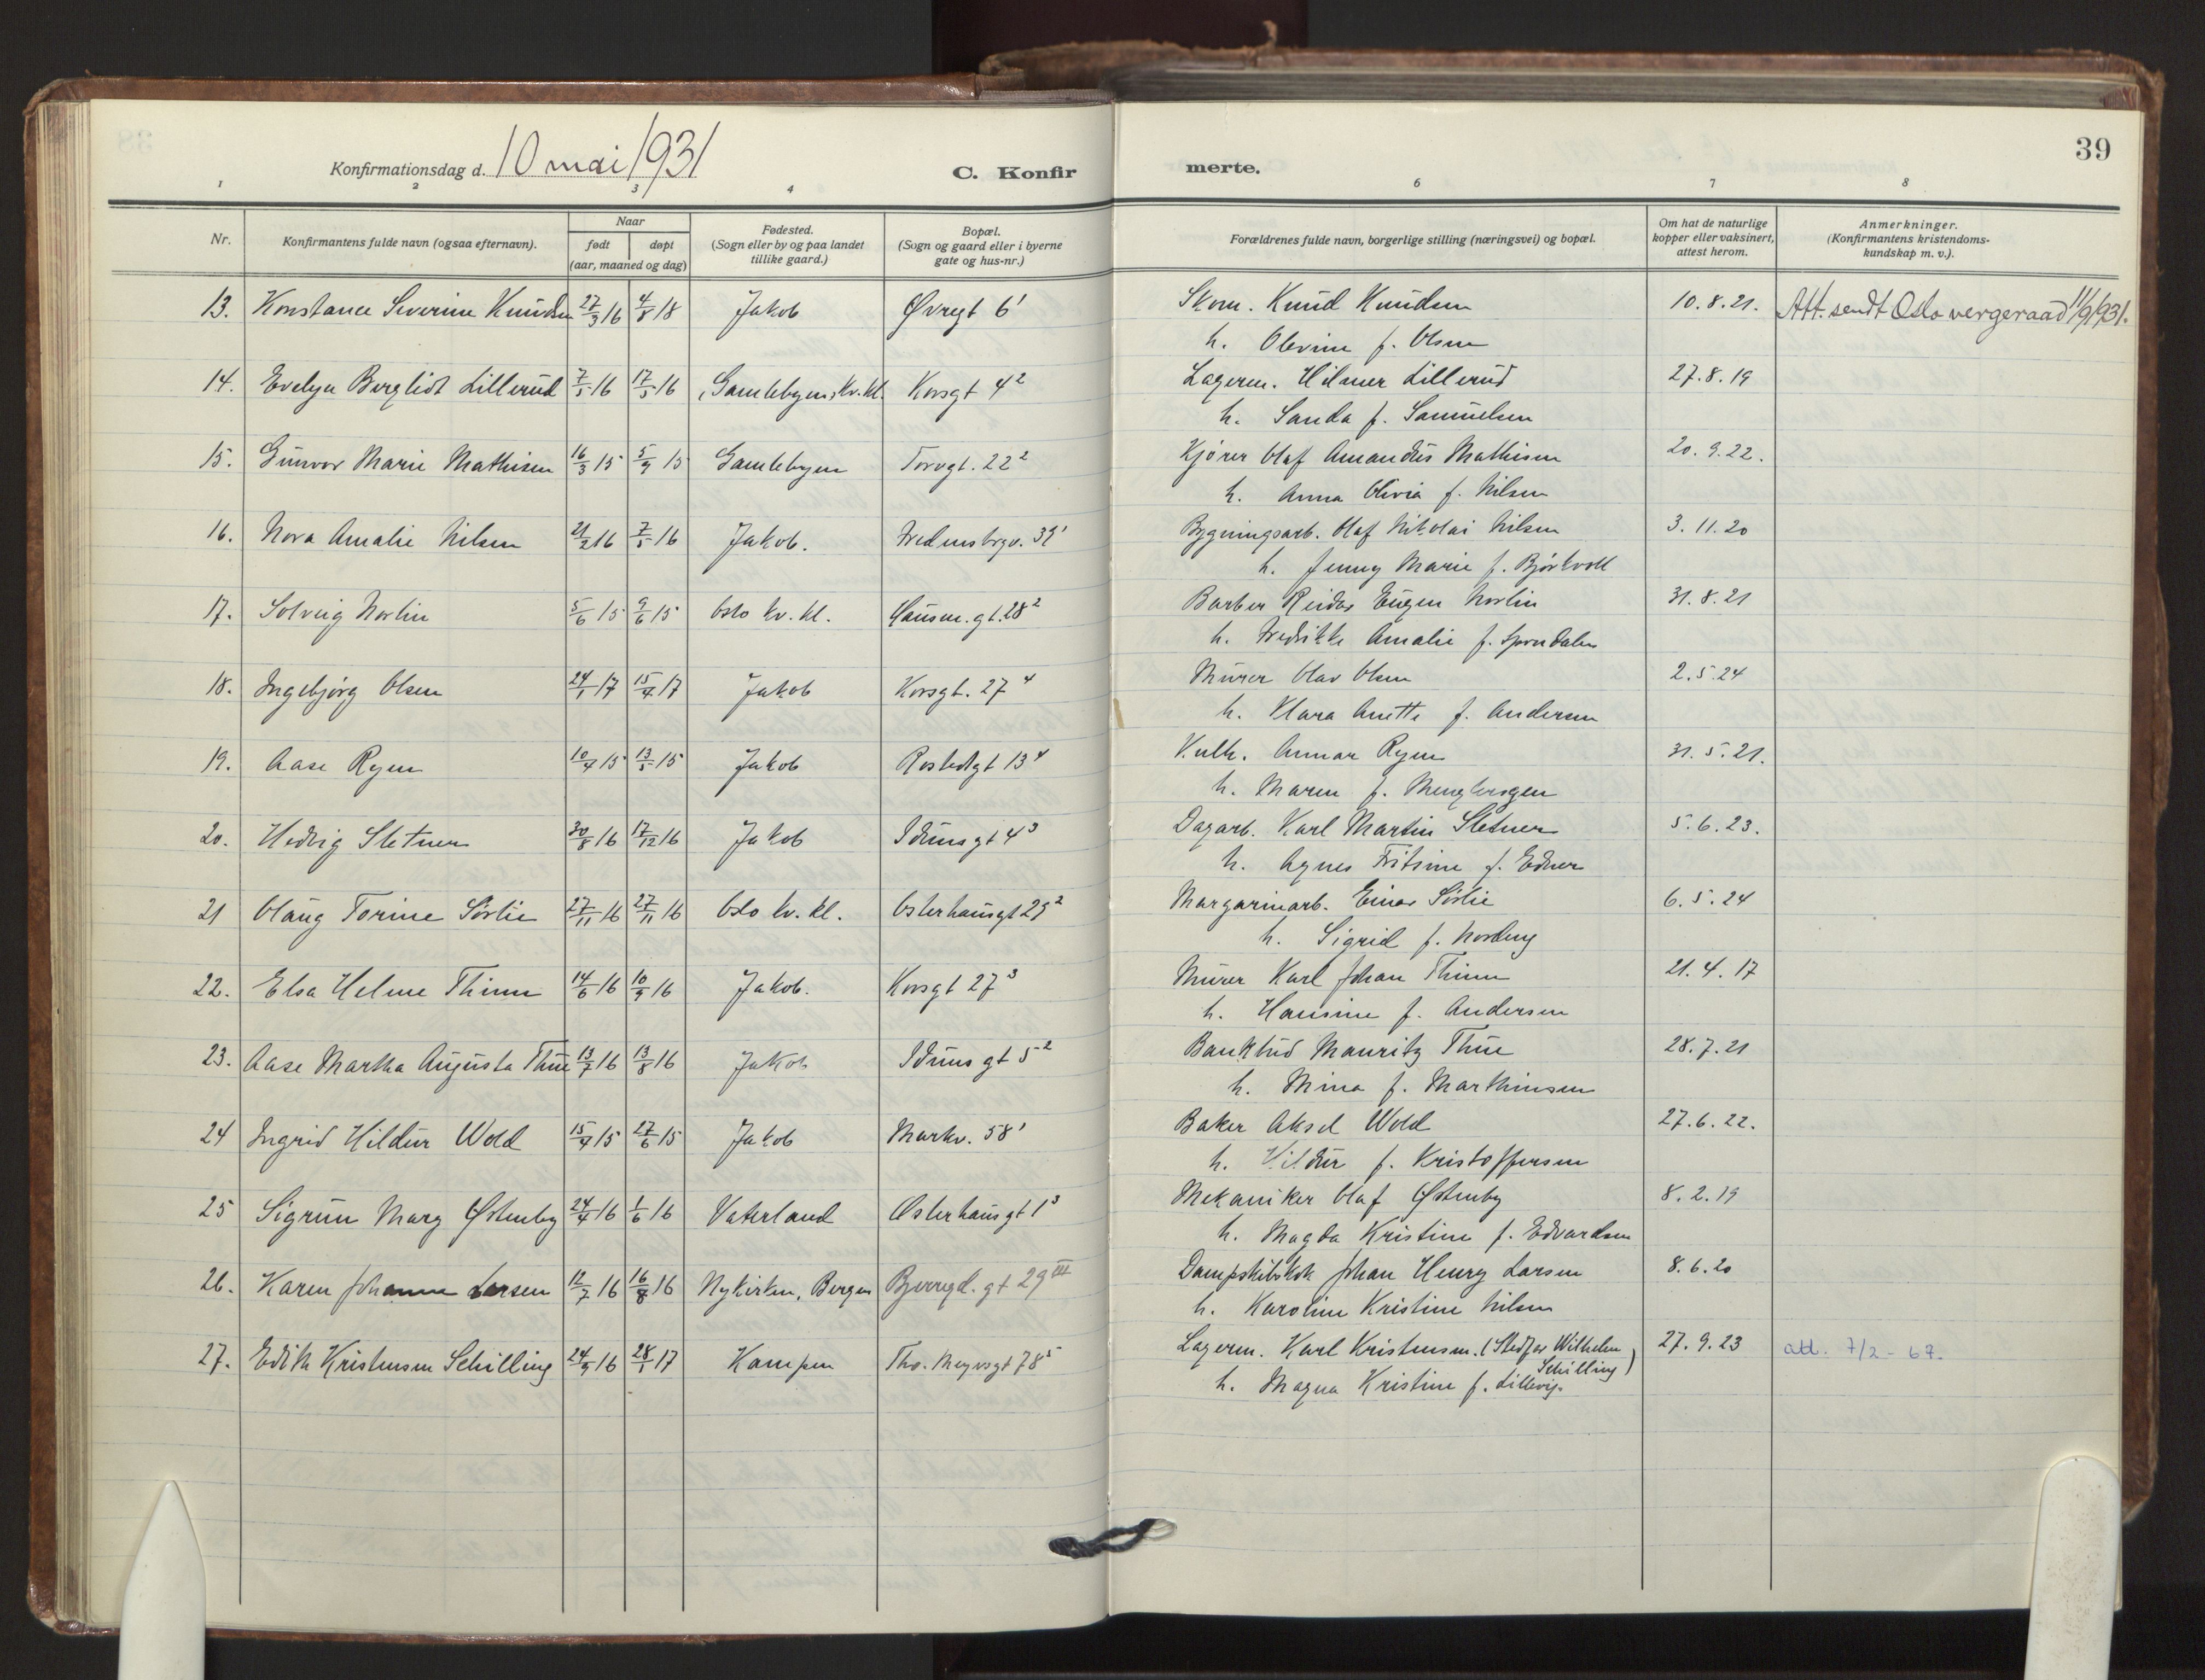 39
Konfirmationsdag d. 10 mai 1931
C. Konfir merte.
1 2 3 4 6 7 8
Nr. Konfirmantens fulde navn (ogsaa efternavn). Naar født døpt (aar, maaned og dag) Fødested. (Sogn eller by og paa landet tillike gaard.) Bopæl. (Sogn og gaard eller i byerne gate og hus-nr.) Forældrenes fulde navn, borgerlige stilling (næringsvei) og bopæl. Om hat de naturlige kopper eller vaksinert, attest herom. Anmerkninger. (Konfirmantens kristendoms-kundskap m. v.).
13. Konstance Severine Knudsen 27/3 16 4/8 18 Jakob Øvregt 6¹ Skom. Knud Knudsen 10.8.21. Att. sendt Oslo vergeraad 11/9 1931.
h. Olevine f. Olsen
14. Evelyn Bergliot Lillerud 7/5 16 17/5 16 Gamlebyens kv. kl. Korsgt 4² Lagerm. Hilmer Lillerud 27.8.19
h. Sanda f. Samuelsen
15. Gunvor Marie Mathisen 16/3 15 5/9 15 Gamlebyen Torvgt. 22² Kjører Olaf Amandus Mathisen 20.9.22.
h. Anna Olivia f. Nilsen
16. Nora Amalie Nilsen 21/2 16 7/5 16 Jakob. Fredensbrgv. 39¹ Bygningsarb. Olaf Nikolai Nilsen 3.11.20
h. Jenny Marie f. Bjørkvoll
17. Solveig Norlin 5/6 15 9/6 15 Oslo kv. kl. Hausm. gt. 28² Barber Reidar Eugen Norlin 31.8.21
h. Fredrikke Amalie f.
18. Ingebjørg Olsen 24/1 17 15/4 17 Jakob Korsgt. 27⁴ Murer Olav Olsen 2.5.24
h. Klara Anette f. Andersen
19. Aase Ryen 10/4 15 13/5 15 Jakob Rostedgt 13⁴ Gunnar Ryen 31.5.21.
h. Maren f.
20. Hedvig Sletner 30/8 16 17/12 16 Jakob Iduns gt 4³ Dagarb. Karl Martin Sletner 5.6.23.
h. Agnes f. Edner
21 Olaug Torine Sørlie 27/11 16 27/11 16 Oslo kv. kl. Osterhausgt 29² Margarinarb. Einar Sørlie 6.5.24
h. Sigrid f. Nordeng
22. Elsa Helene Thinn 14/6 16 10/9 16 Jakob. Korsgt 27³ Murer Karl Johan Thinn 21.4.17
h. Hansine f. Andersen
23. Aase Martha Augusta Thue 13/7 16 13/8 16 Jakob Iduns gt 5² Bankbud Mauritz Thue 28.7.21
h. Mina f. Marthinsen
24 Ingrid Hildur Wold 15/4 15 27/6 15 Jakob Markv. 58¹ Baker Aksel Wold 27.6.22.
h. Hildur f. Kristoffersen
25 Sigrun Mary Østenby 24/4 16 1/6 16 Vaterland Osterhausgt 1³ Mekaniker Olaf Østenby 8.2.19
h. Magda Kristine f. Edvardsen
26. Karen Johanne Larsen 12/7 16 16/8 16 Nykirken, Bergen Bjerregd. gt 29 III Dampskibskok Johan Henry Larsen 8.6.20
h. Karoline Kristine Nilsen
27. Edith Kristensen Schilling 24/9 16 28/1 17 Kampen Tho. Meyersgt 78⁵ Lagerm. Karl Kristensen. (Stedfar Wilhelm Schilling) 27.9.23 att. 7/2 - 67.
h. Magna Kristine f. Lillevig.